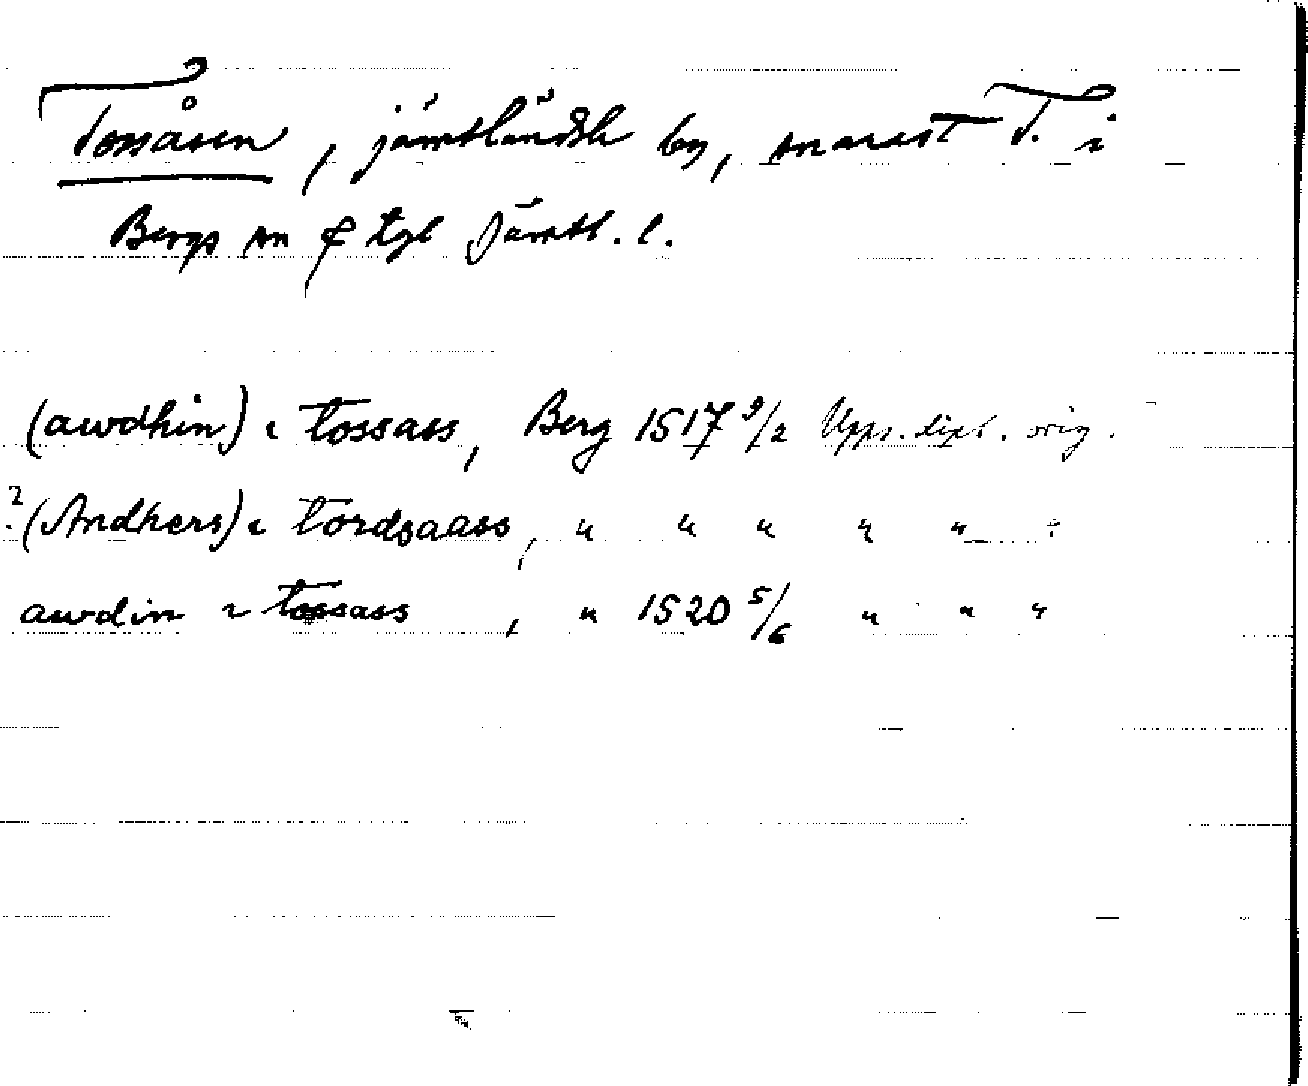 Tossåsen, jämtländsk by, snarast T. i
Bergs sn o tgl Jämtl. l.
(awdhin) i tossass, Berg 1517 9/2 Upps. dipl. orig.
? (Andhers) i tordsaass, " " " " " "
awdin i tossass, " 1520 5/6 " " "